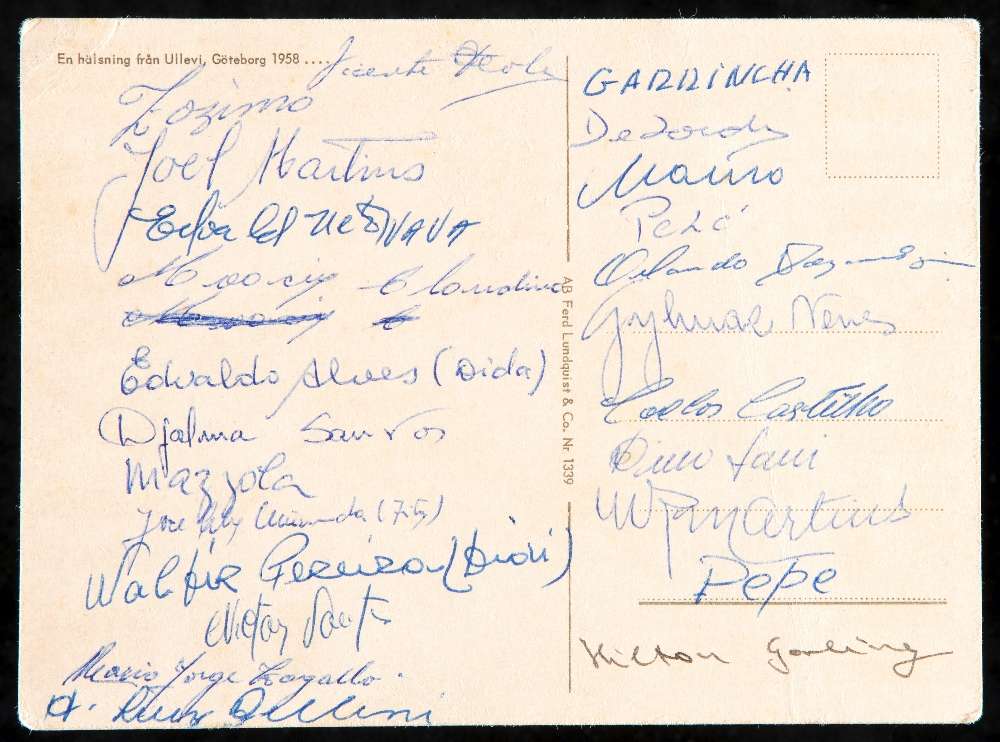 En hälsning från Ullevi, Göteborg 1958 ....
Vicente Feola
Zozimo
Joel Martins
Edvaldo Neto VAVA
Moacir Claudino
Edvaldo Alves (Dida)
Djalma Santos
Mazzola
(Zito)
Waldir Pereira (Didi)
Nilton Santos
Mario Jorge Zagallo.
H. Luiz Bellini
AB Ferd Lundquist & Co. Nr 1339
GARRINCHA
De Sordi
Mauro
PELÉ
Orlando
Gylmar Neves
Carlos Castilho
Dino Sani
Martins
PEPE
Hilton Gosling